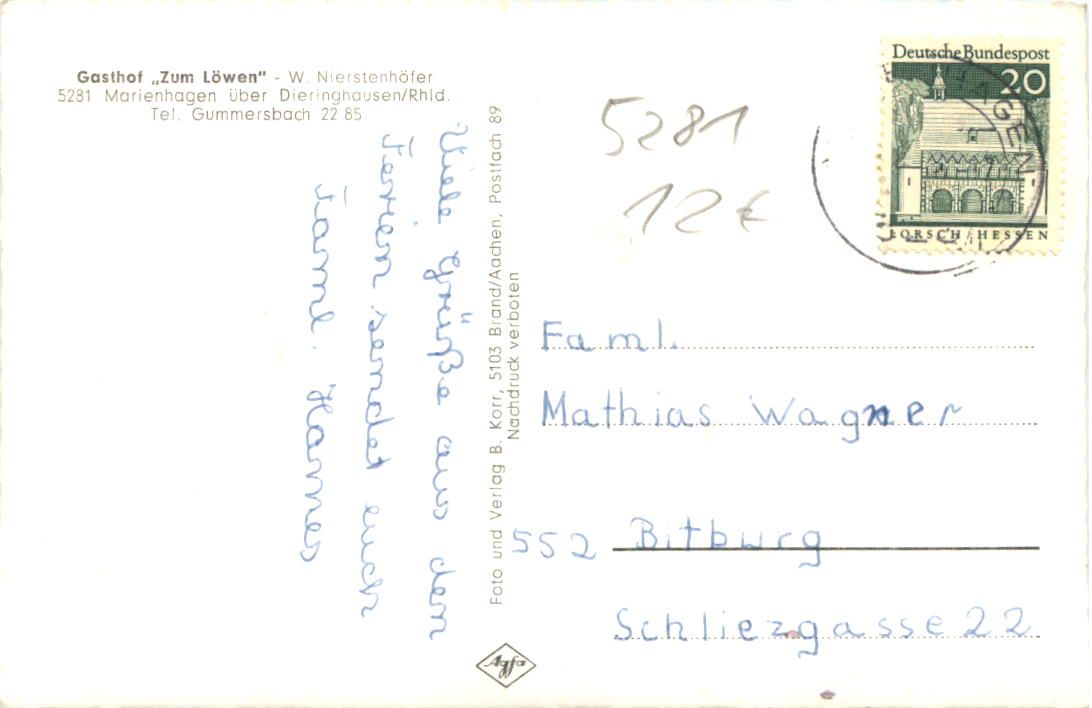 Gasthof „Zum Löwen" - W. Nierstenhöfer
5281 Marienhagen über Dieringhausen/Rhld.
Tel. Gummersbach 22 85
Viele Grüße aus den
Ferien sendet euch
Faml. Hannes
Foto und Verlag B. Korr, 5103 Brand/Aachen, Postfach 89
Nachdruck verboten
5281
12 €
Deutsche Bundespost
20
LORSCH/HESSEN
Faml.
Mathias Wagner
552 Bitburg
Schliezgasse 22
Agfa